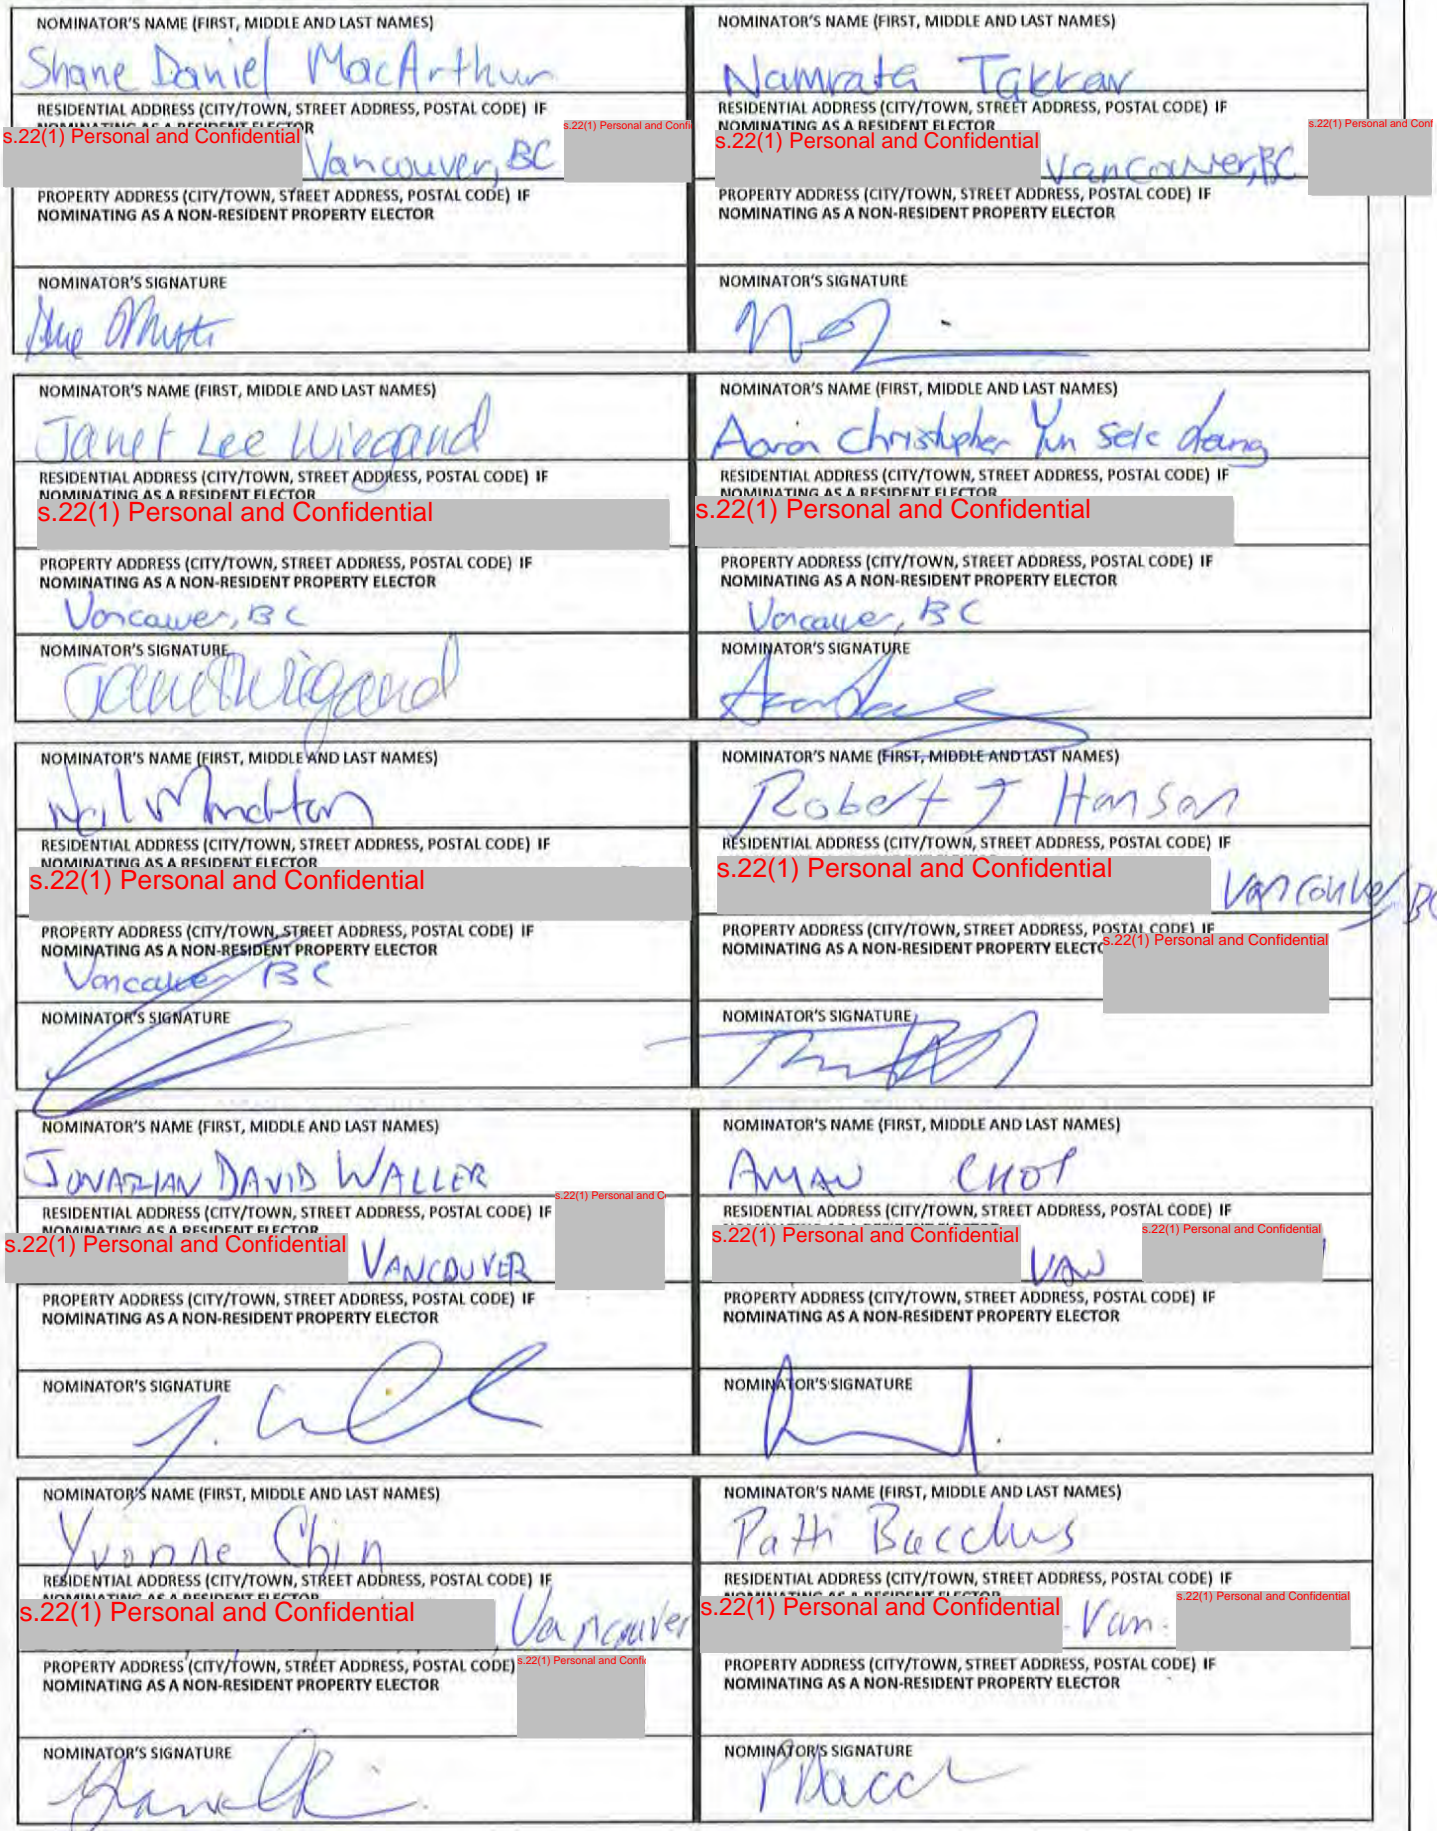 NOMINATOR'S NAME (FIRST, MIDDLE AND LAST NAMES)
Shane Daniel MacArthur
RESIDENTIAL ADDRESS (CITY/TOWN, STREET ADDRESS, POSTAL CODE) IF
NOMINATING AS A RESIDENT ELECTOR
s.22(1) Personal and Confidential
Vancouver, BC
s.22(1) Personal and Confi
PROPERTY ADDRESS (CITY/TOWN, STREET ADDRESS, POSTAL CODE) IF
NOMINATING AS A NON-RESIDENT PROPERTY ELECTOR
NOMINATOR'S SIGNATURE
NOMINATOR'S NAME (FIRST, MIDDLE AND LAST NAMES)
Namrata Takkar
RESIDENTIAL ADDRESS (CITY/TOWN, STREET ADDRESS, POSTAL CODE) IF
NOMINATING AS A RESIDENT ELECTOR
s.22(1) Personal and Confidential
Vancouver, BC
s.22(1) Personal and Conf
PROPERTY ADDRESS (CITY/TOWN, STREET ADDRESS, POSTAL CODE) IF
NOMINATING AS A NON-RESIDENT PROPERTY ELECTOR
NOMINATOR'S SIGNATURE
NOMINATOR'S NAME (FIRST, MIDDLE AND LAST NAMES)
Janet Lee Wiegand
RESIDENTIAL ADDRESS (CITY/TOWN, STREET ADDRESS, POSTAL CODE) IF
NOMINATING AS A RESIDENT ELECTOR
s.22(1) Personal and Confidential
PROPERTY ADDRESS (CITY/TOWN, STREET ADDRESS, POSTAL CODE) IF
NOMINATING AS A NON-RESIDENT PROPERTY ELECTOR
Vancouver, BC
NOMINATOR'S SIGNATURE
Janet Wiegand
NOMINATOR'S NAME (FIRST, MIDDLE AND LAST NAMES)
Aaron Christopher Yun
RESIDENTIAL ADDRESS (CITY/TOWN, STREET ADDRESS, POSTAL CODE) IF
NOMINATING AS A RESIDENT ELECTOR
s.22(1) Personal and Confidential
PROPERTY ADDRESS (CITY/TOWN, STREET ADDRESS, POSTAL CODE) IF
NOMINATING AS A NON-RESIDENT PROPERTY ELECTOR
Vancouver, BC
NOMINATOR'S SIGNATURE
NOMINATOR'S NAME (FIRST, MIDDLE AND LAST NAMES)
Neil
RESIDENTIAL ADDRESS (CITY/TOWN, STREET ADDRESS, POSTAL CODE) IF
NOMINATING AS A RESIDENT ELECTOR
s.22(1) Personal and Confidential
PROPERTY ADDRESS (CITY/TOWN, STREET ADDRESS, POSTAL CODE) IF
NOMINATING AS A NON-RESIDENT PROPERTY ELECTOR
Vancouver BC
NOMINATOR'S SIGNATURE
NOMINATOR'S NAME (FIRST, MIDDLE AND LAST NAMES)
Robert J Hanson
RESIDENTIAL ADDRESS (CITY/TOWN, STREET ADDRESS, POSTAL CODE) IF
s.22(1) Personal and Confidential
Vancouver BC
PROPERTY ADDRESS (CITY/TOWN, STREET ADDRESS, POSTAL CODE) IF
NOMINATING AS A NON-RESIDENT PROPERTY ELECTO
s.22(1) Personal and Confidential
NOMINATOR'S SIGNATURE
NOMINATOR'S NAME (FIRST, MIDDLE AND LAST NAMES)
JONATHAN DAVID WALLER
RESIDENTIAL ADDRESS (CITY/TOWN, STREET ADDRESS, POSTAL CODE) IF
NOMINATING AS A RESIDENT ELECTOR
s.22(1) Personal and C
s.22(1) Personal and Confidential
VANCOUVER
PROPERTY ADDRESS (CITY/TOWN, STREET ADDRESS, POSTAL CODE) IF
NOMINATING AS A NON-RESIDENT PROPERTY ELECTOR
NOMINATOR'S SIGNATURE
NOMINATOR'S NAME (FIRST, MIDDLE AND LAST NAMES)
AMAN
RESIDENTIAL ADDRESS (CITY/TOWN, STREET ADDRESS, POSTAL CODE) IF
s.22(1) Personal and Confidential
VAN
s.22(1) Personal and Confidential
PROPERTY ADDRESS (CITY/TOWN, STREET ADDRESS, POSTAL CODE) IF
NOMINATING AS A NON-RESIDENT PROPERTY ELECTOR
NOMINATOR'S SIGNATURE
NOMINATOR'S NAME (FIRST, MIDDLE AND LAST NAMES)
Yvonne Chin
RESIDENTIAL ADDRESS (CITY/TOWN, STREET ADDRESS, POSTAL CODE) IF
NOMINATING AS A RESIDENT ELECTOR
s.22(1) Personal and Confidential
, Vancouver
PROPERTY ADDRESS (CITY/TOWN, STREET ADDRESS, POSTAL CODE)
s.22(1) Personal and Confi
NOMINATING AS A NON-RESIDENT PROPERTY ELECTOR
NOMINATOR'S SIGNATURE
NOMINATOR'S NAME (FIRST, MIDDLE AND LAST NAMES)
Patti Bacchus
RESIDENTIAL ADDRESS (CITY/TOWN, STREET ADDRESS, POSTAL CODE) IF
NOMINATING AS A RESIDENT ELECTOR
s.22(1) Personal and Confidential
Van.
s.22(1) Personal and Confidential
PROPERTY ADDRESS (CITY/TOWN, STREET ADDRESS, POSTAL CODE) IF
NOMINATING AS A NON-RESIDENT PROPERTY ELECTOR
NOMINATOR'S SIGNATURE